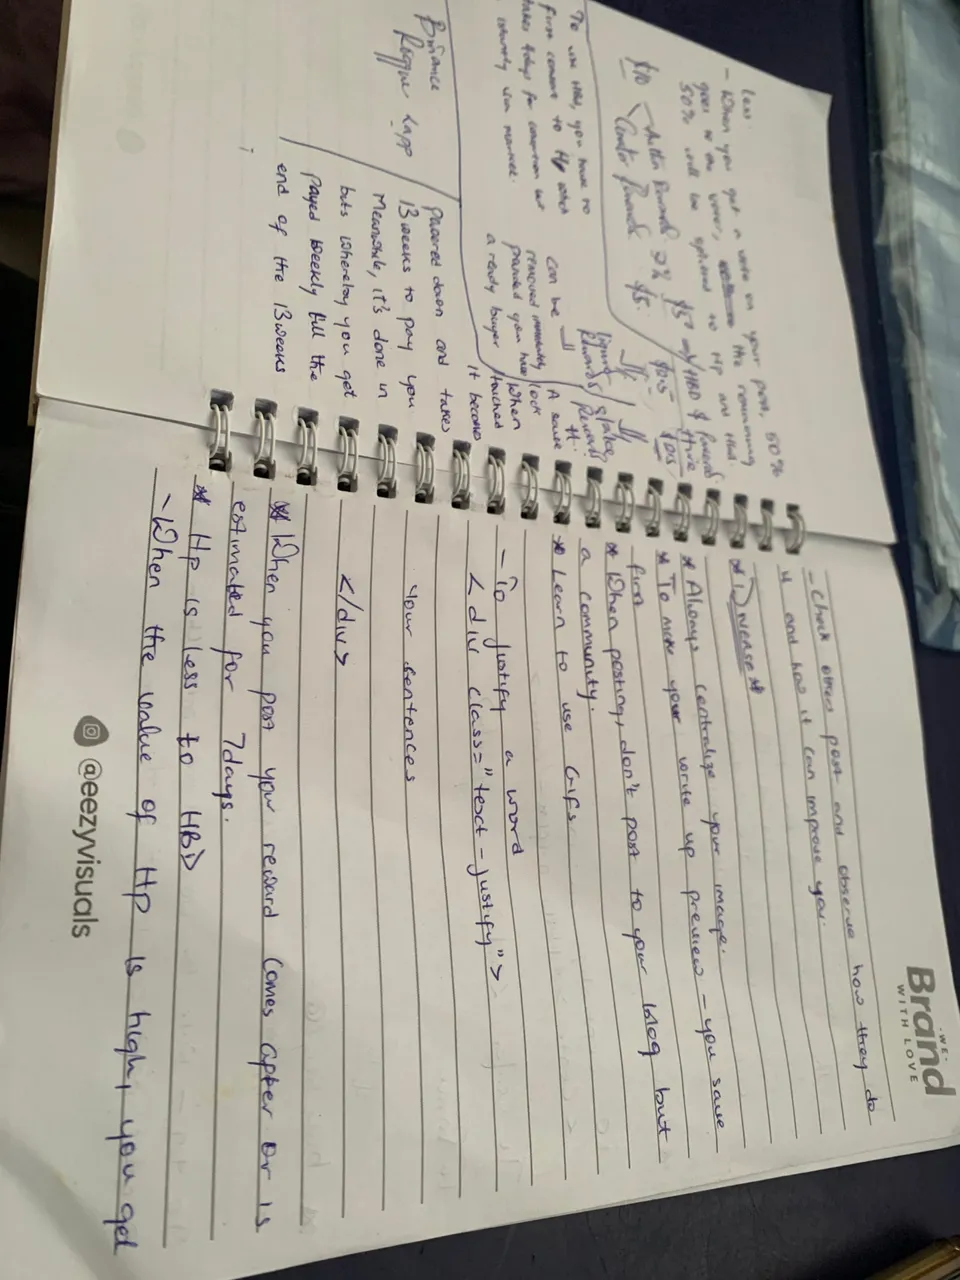 -WE-
Brand
WITH LOVE
- Check others post and observe how they do
it and how it can improve you.
* Always centralize your image.
* To make your write up preview - you save
first
* When posting, don't post to your blog but
a community.
* Learn to use Gifs
- To justify a word
< div class="text-justify">
Your sentences
</div>
* When you post your reward comes after or is
estimated for 7days.
* Hp is less to HBD
- When the value of Hp is high, you get
@eezyvisuals
less.
- When you get a vote on your post, 50%
goes to the voter, the remaining
50% will be splitted to Hp and Hbd.
$10
Author Rewards
Curator Rewards $5.
To use Hbd, you have to
first convert to Hp which
takes 4days for
can be
removed immediately
provided you have
a ready buyer
When
it becomes
powered down and takes
13 weeks to pay you
Meanwhile, it's done in
bits whereby you get
payed weekly till the
end of the 13 weeks
Binance